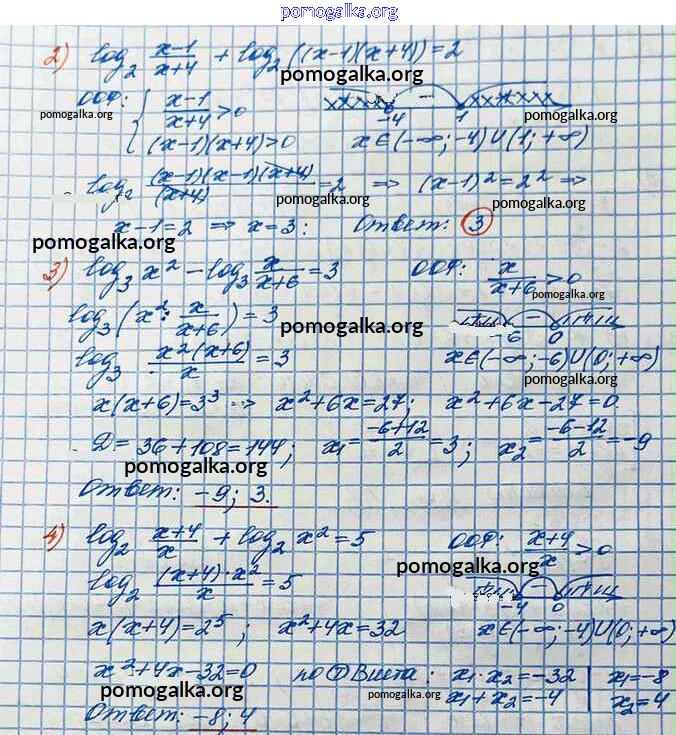 pomogalka.org
2) log₂ (x-1)/(x+4) + log₂((x-1)(x+4)) = 2
pomogalka.org
ООФ: { (x-1)/(x+4) > 0
- -4 1
pomogalka.org pomogalka.org
(x-1)(x+4) > 0 x∈(-∞; -4)∪(1; +∞)
log₂ (x-1)(x-1)(x+4)/(x+4) = 2 => (x-1)² = 2² =>
pomogalka.org pomogalka.org
x-1=2 => x=3: Ответ: 3
pomogalka.org
3) log₃ x² - log₃ x/(x+6) = 3 ООФ: x/(x+6) > 0
pomogalka.org
log₃(x² : x/(x+6)) = 3 - -6 0
pomogalka.org
log₃ x²(x+6)/x = 3 x∈(-∞; -6)∪(0; +∞)
pomogalka.org
x(x+6)=3³ => x²+6x=27; x²+6x-27=0.
D=36+108=144; x₁= (-6+12)/2 = 3; x₂= (-6-12)/2 = -9
pomogalka.org
Ответ: -9; 3.
4) log₂ (x+4)/x + log₂ x² = 5 ООФ: (x+4)/x > 0
pomogalka.org
log₂ (x+4)·x²/x = 5 - -4 0
x(x+4)=2⁵; x²+4x=32 x∈(-∞; -4)∪(0; +∞)
x²+4x-32=0 по Т Виета: x₁·x₂=-32 | x₁=-8
pomogalka.org pomogalka.org
x₁+x₂=-4 | x₂=4
Ответ: -8; 4
pomogalka.org